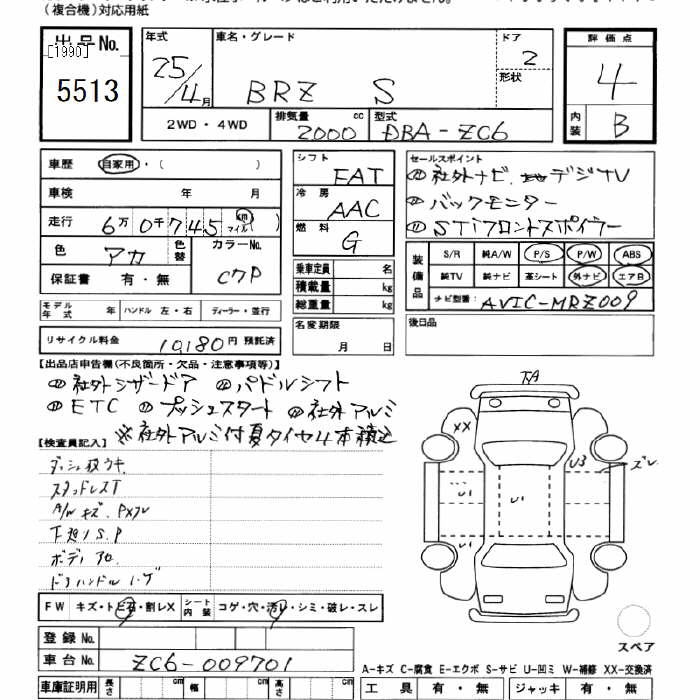 （複合機）対応用紙
出品No. 年式 車名・グレード ドア 評価点
[1990] 5513 25/4月 BRZ S 2 形状 4
2WD・4WD 排気量 2000 cc 型式 DBA-ZC6 内装 B
車歴 自家用・（ ） シフト FAT セールスポイント
社外ナビ デジTV
車検 年 月 冷房 AAC バックモニター
走行 6万0千745 km マイル( ) 燃料 G STiフロントスポイラー
色 アカ 色替 カラーNo. C7P 乗車定員 名 装備品 S/R 純A/W P/S P/W ABS
保証書 有・無 積載量 kg 純TV 純ナビ 革シート 外ナビ エアB
総重量 kg ナビ型番: AVIC-MRZ009
モデル年式 年 ハンドル 左・右 ディーラー・並行 名変期限 月 日 後日品
リサイクル料金 10,180円 預託済
【出品店申告欄(不良箇所・欠品・注意事項等)】
社外シザードア パドルシフト
ETC プッシュスタート 社外アルミ
※社外アルミ付夏タイヤ4本積込
【検査員記入】
スタッドレスT
A/Wキズ.
ボディ
ドアハンドル
TA
XX
U3 ズレ
U1 U1
U1
FW キズ・トビ石・割レX シート内装 コゲ・穴・汚レ・シミ・破レ・スレ
登録No.
スペア
車台No. ZC6-009701
A-キズ C-腐食 E-エクボ S-サビ U-凹ミ W-補修 XX-交換済
車庫証明用 長さ cm 幅 cm 高さ cm 工具 有・無 ジャッキ 有・無